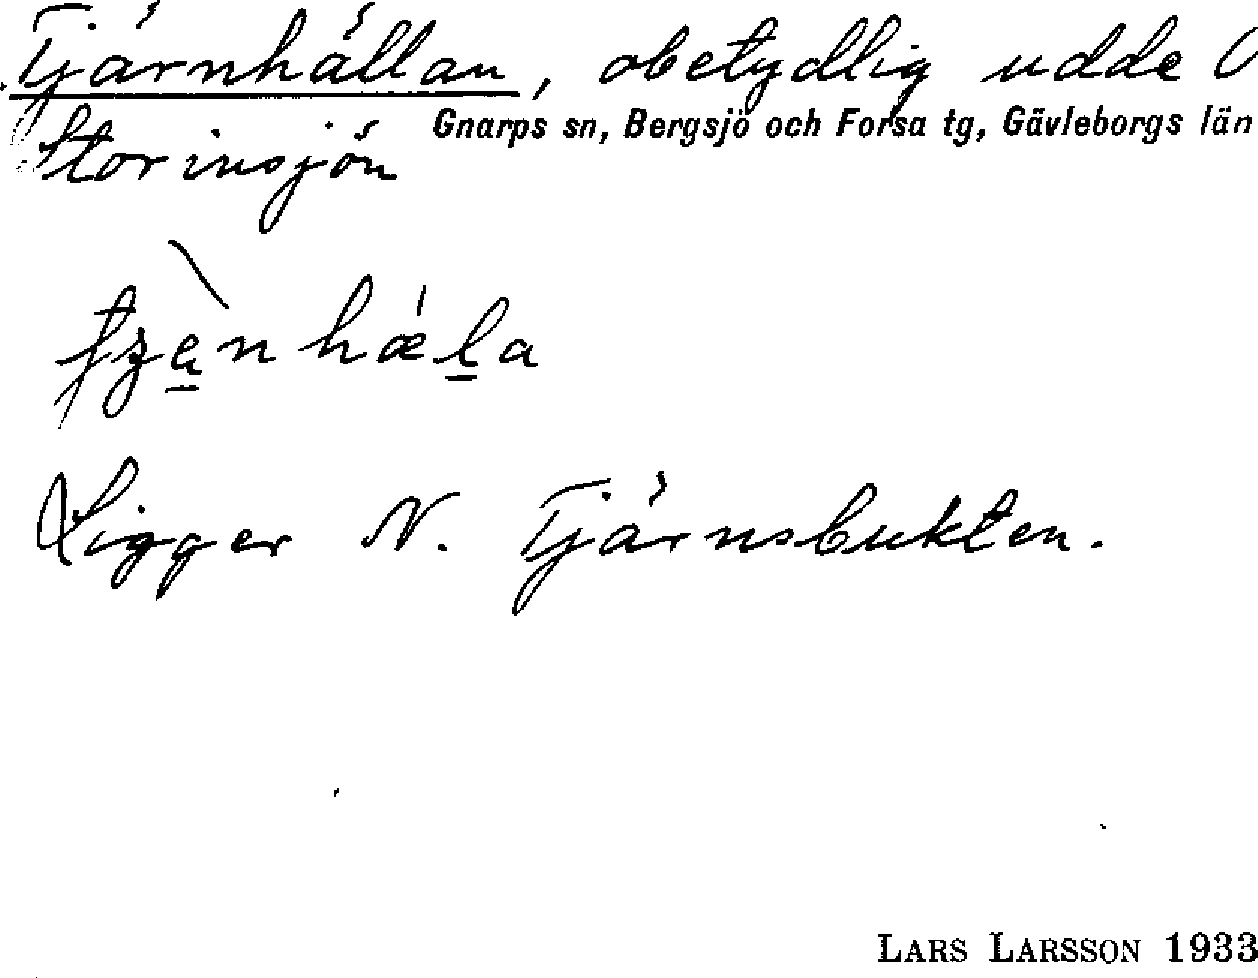 Tjärnhällan, obetydlig udde
Gnarps sn, Bergsjö och Forsa tg, Gävleborgs län
Storinsjön
Ligger N. Tjärnsbukten.
LARS LARSSON 1933